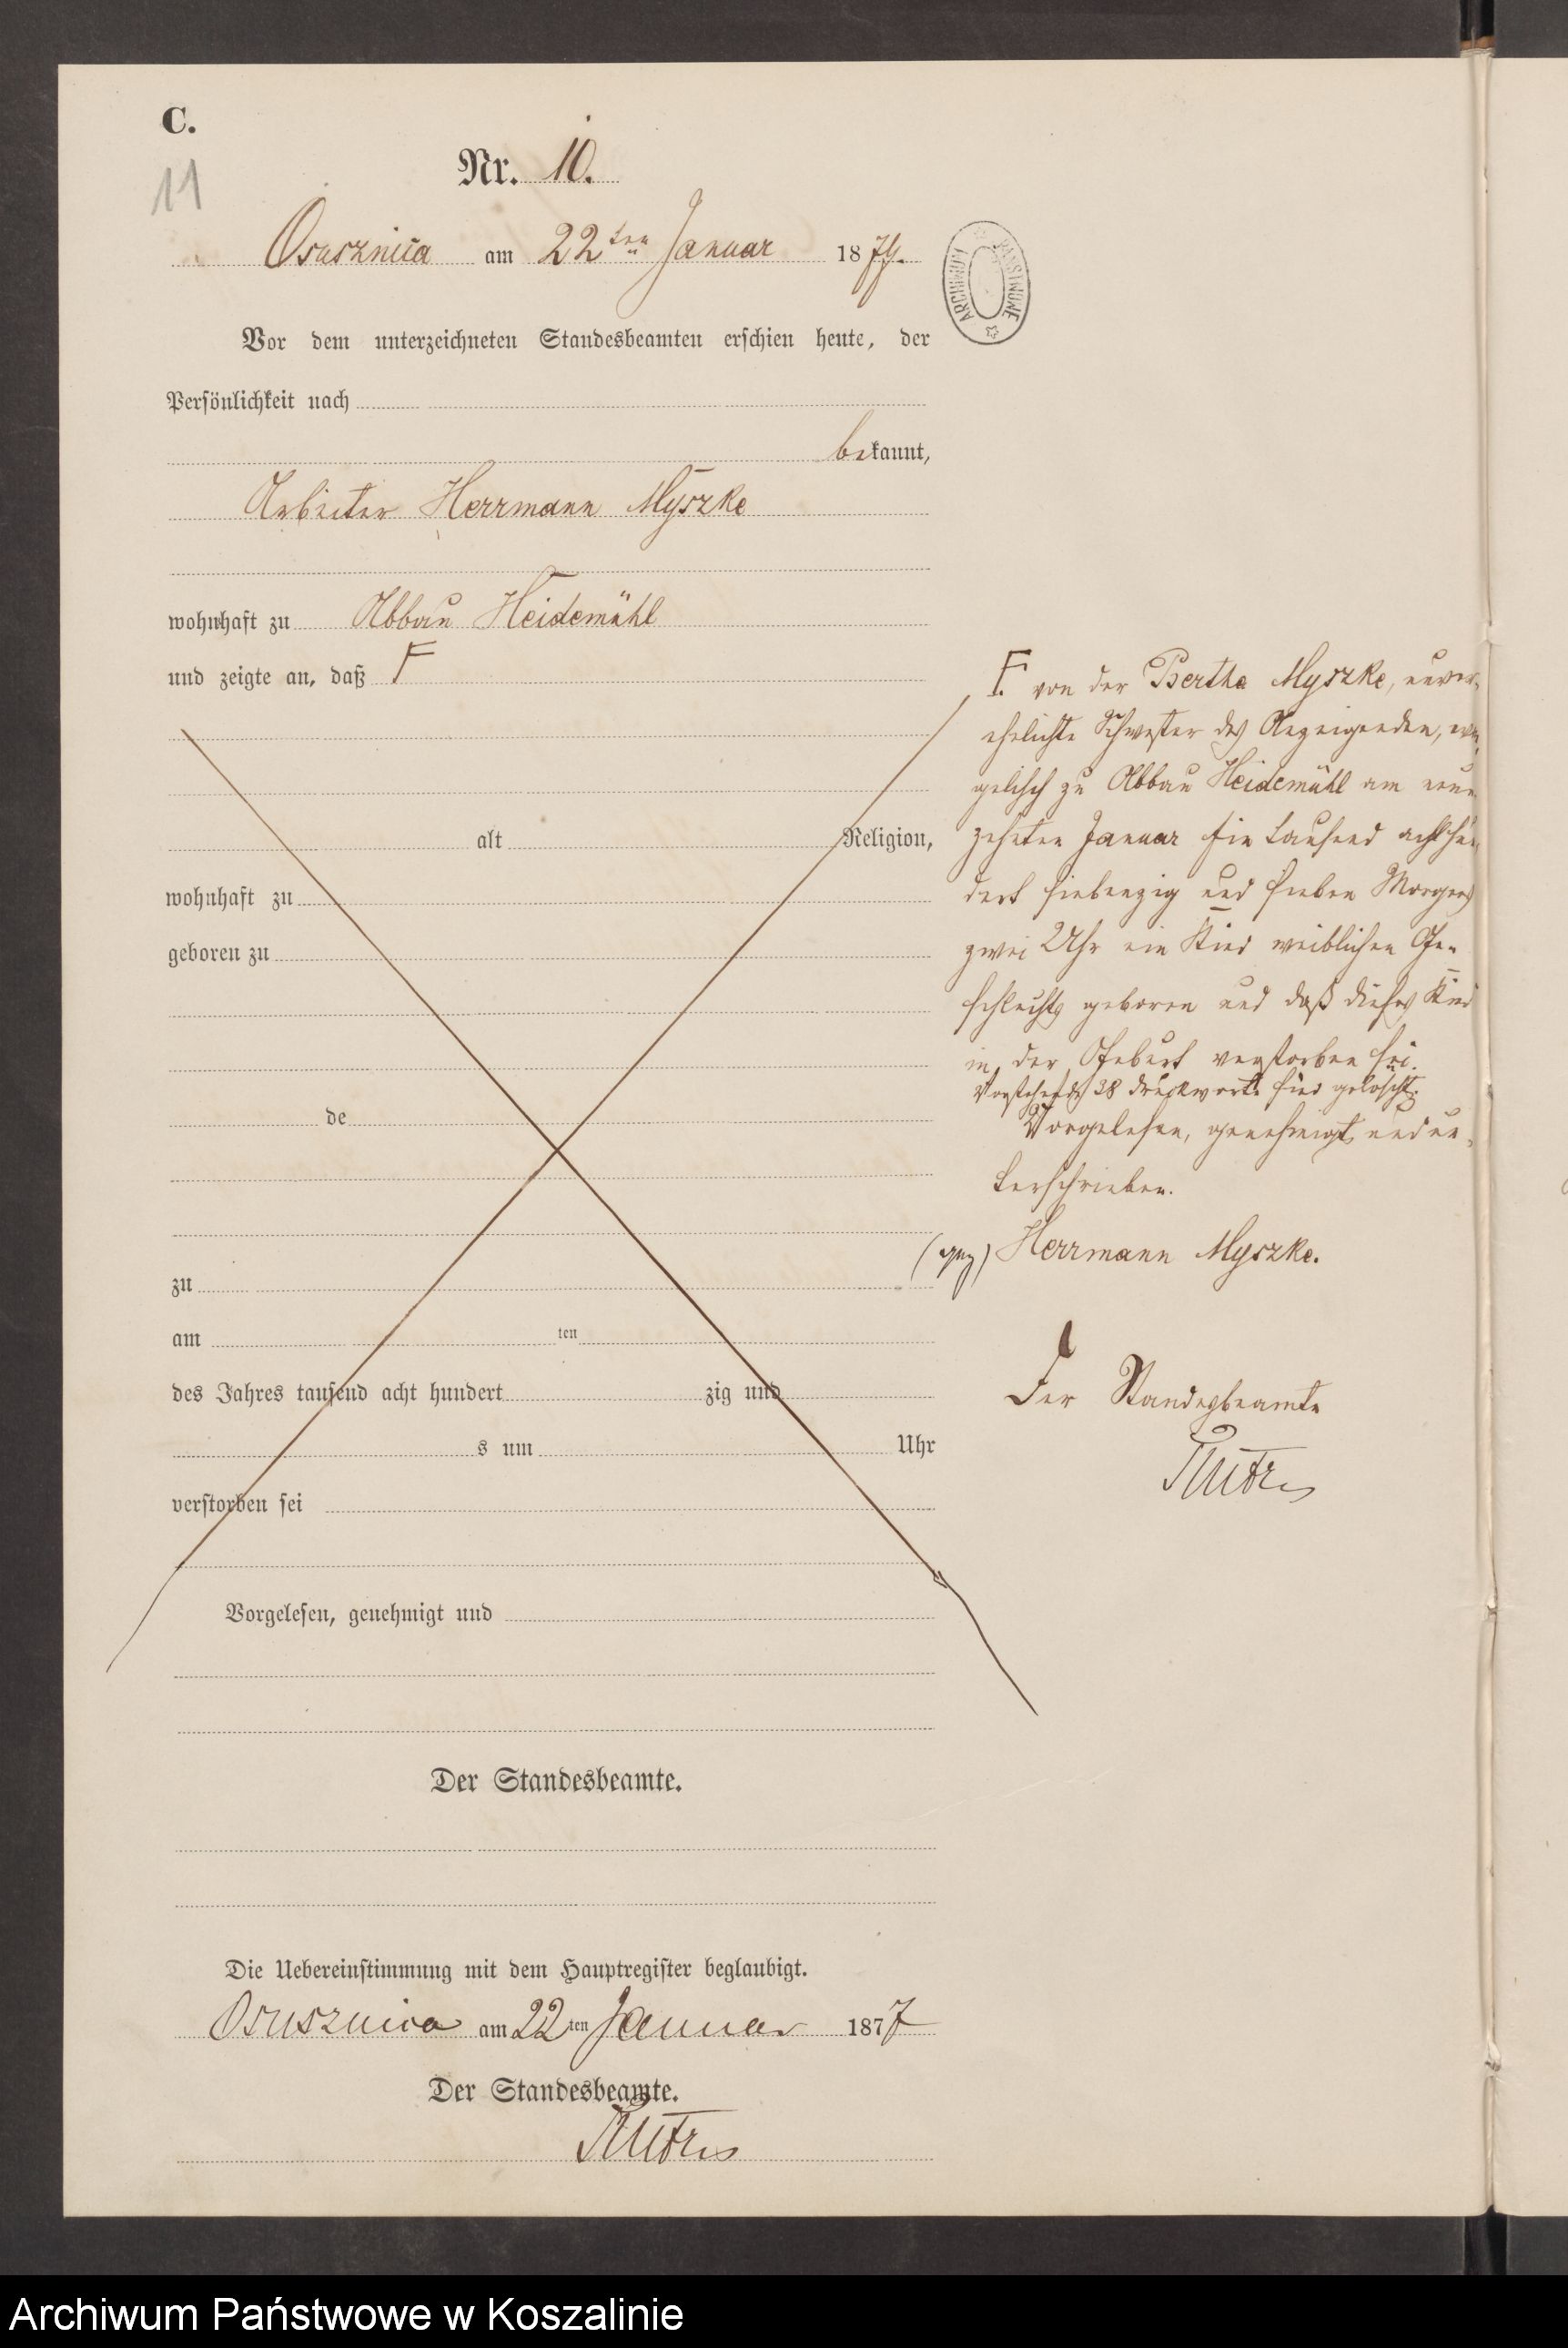 C.
11
Nr. 10.
Osusznica am 22ten Januar 1877.
ARCHIWUM PAŃSTWOWE
Vor dem unterzeichneten Standesbeamten erschien heute, der
Persönlichkeit nach
bekannt,
Arbeiter Herrmann Myszke
wohnhaft zu Abbau Heidemühl
und zeigte an, daß F
alt Religion,
wohnhaft zu
geboren zu
de
zu
am ten
des Jahres tausend acht hundert zig und
s um Uhr
verstorben sei
Vorgelesen, genehmigt und
Der Standesbeamte.
F. von der Bertha Myszke, unver-
ehelichte Schwester des Anzeigenden, evan-
gelisch zu Abbau Heidemühl am neun-
zehnten Januar Ein tausend achthun-
dert siebenzig und sieben Morgens
zwei Uhr ein Kind weiblichen Ge-
schlechts geboren und daß dieses Kind
in der Geburt verstorben sei.
Vorstehende 28 Druckworte sind gelöscht.
Vorgelesen, genehmigt und un-
terschrieben.
(gez) Herrmann Myszke.
Der Standesbeamte
Die Uebereinstimmung mit dem Hauptregister beglaubigt.
Osusznica am 22ten Januar 1877
Der Standesbeamte.
Archiwum Państwowe w Koszalinie